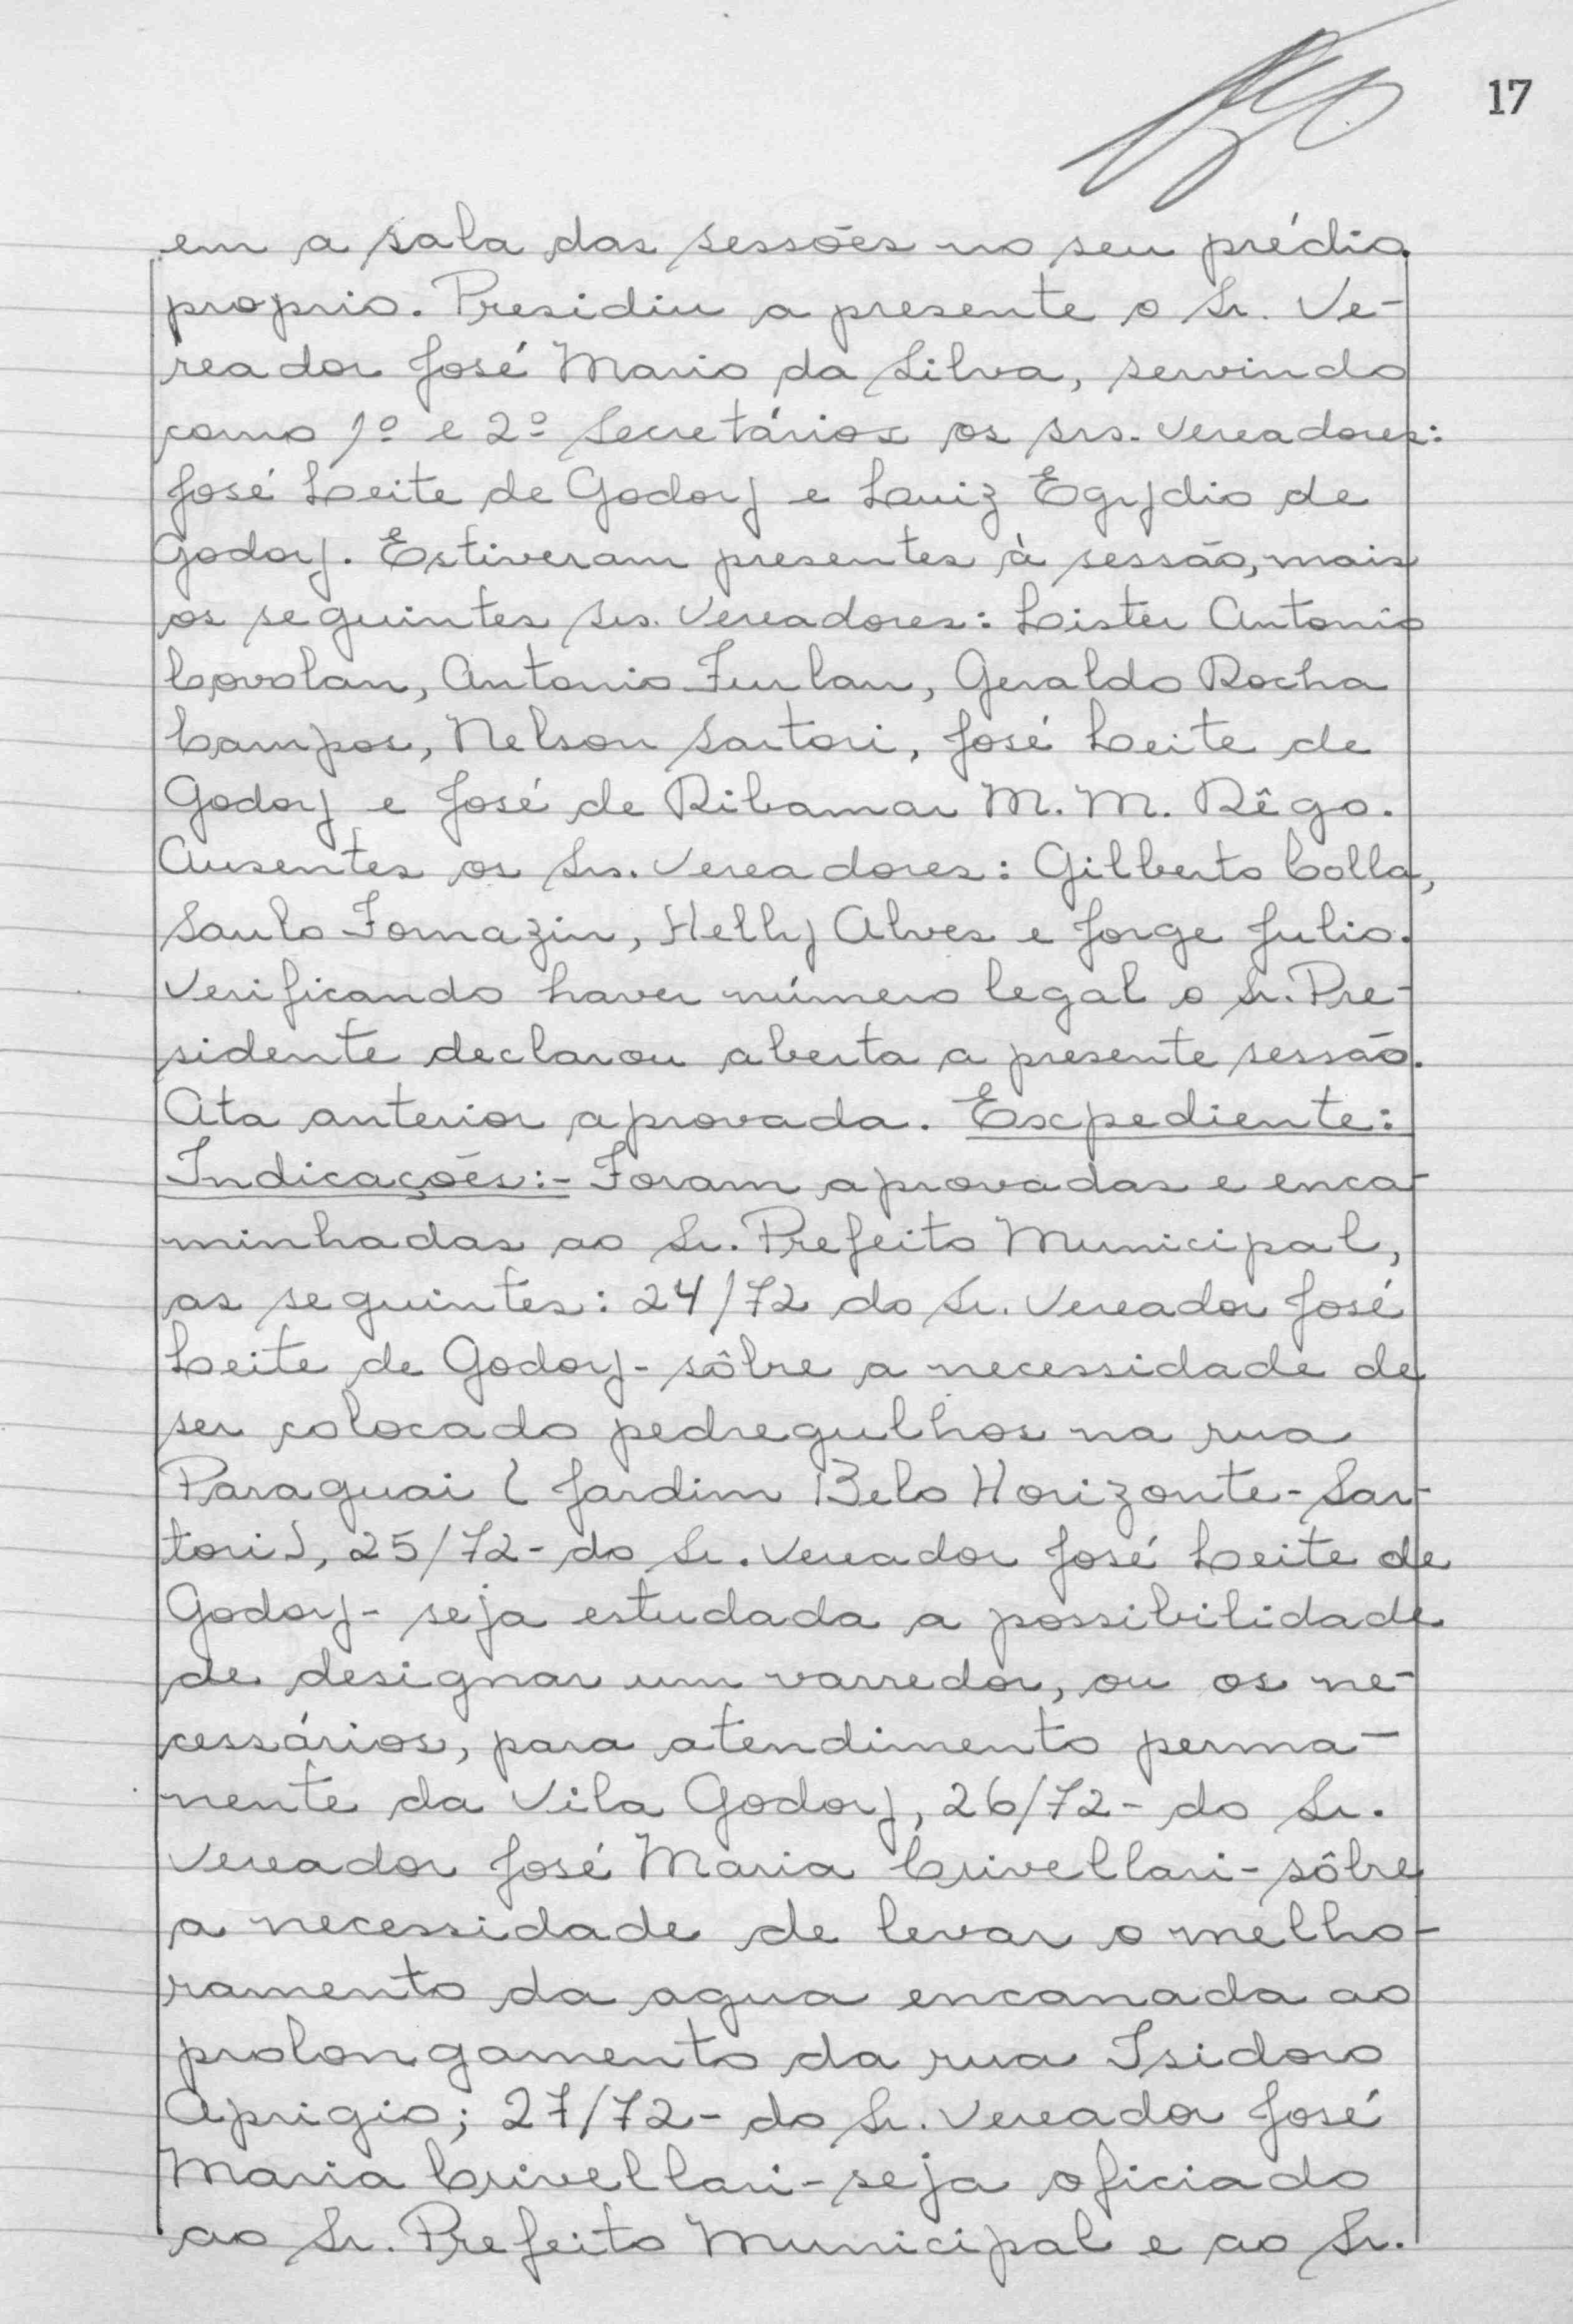 17
em a sala das sessões no seu prédio
proprio. Presidiu a presente o Sr. Ve-
reador José Mario da Silva, servindo
como 1º e 2º Secretários os srs. Vereadores:
José Leite de Godoy e Luiz Egydio de
Godoy. Estiveram presentes à sessão, mais
os seguintes srs. Vereadores: Lister Antonio
Covolan, Antonio Furlan, Geraldo Rocha
Campos, Nelson Sartori, José Leite de
Godoy e José de Ribamar M. M. Rêgo.
Ausentes os Srs. Vereadores: Gilberto Colla,
Saulo Fornazin, Helly Alves e Jorge Julio.
Verificando haver número legal o Sr. Pre-
sidente declarou aberta a presente sessão.
Ata anterior aprovada. Expediente:
Indicações:- Foram aprovadas e enca-
minhadas ao Sr. Prefeito Municipal,
as seguintes: 24/72 do Sr. Vereador José
Leite de Godoy- sôbre a necessidade de
ser colocado pedregulhos na rua
Paraguai (Jardim Belo Horizonte-Sar-
tori), 25/72- do Sr. Vereador José Leite de
Godoy- seja estudada a possibilidade
de designar um varredor, ou os ne-
cessários, para atendimento perma-
nente da Vila Godoy, 26/72- do Sr.
Vereador José Maria Crivellari- sôbre
a necessidade de levar o melho-
ramento da agua encanada ao
prolongamento da rua Isidoro
Aprigio; 27/72- do Sr. Vereador José
Maria Crivellari- seja oficiado
ao Sr. Prefeito Municipal e ao Sr.